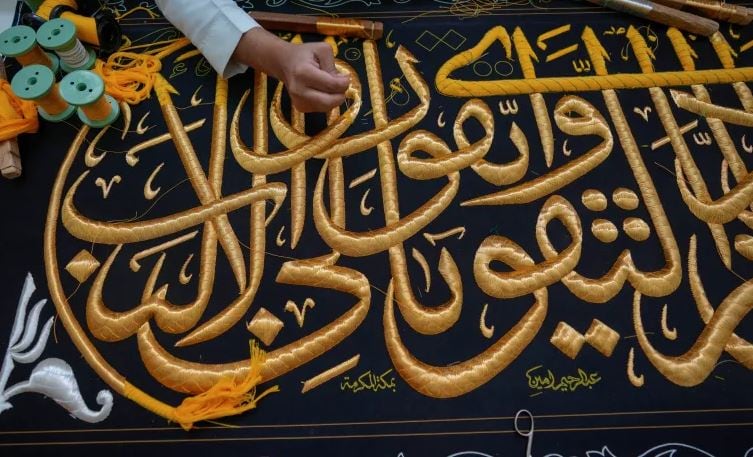 التقوى واتقون يا أولي الألباب
عبدالرحيم امين
بمكة المكرمة